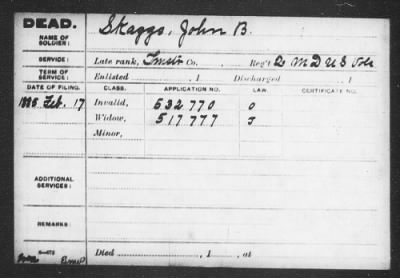 DEAD.
NAME OF SOLDIER:
Skaggs, John B.
SERVICE:
Late rank, Tmstr Co. , Reg't Q M D U S Vols
TERM OF SERVICE:
Enlisted , 1 Discharged , 1
DATE OF FILING. CLASS. APPLICATION NO. LAW. CERTIFICATE NO.
1885 Feb. 17 Invalid, 532770
Widow, 517777
Minor,
ADDITIONAL SERVICES:
REMARKS:
Died , 1 , at